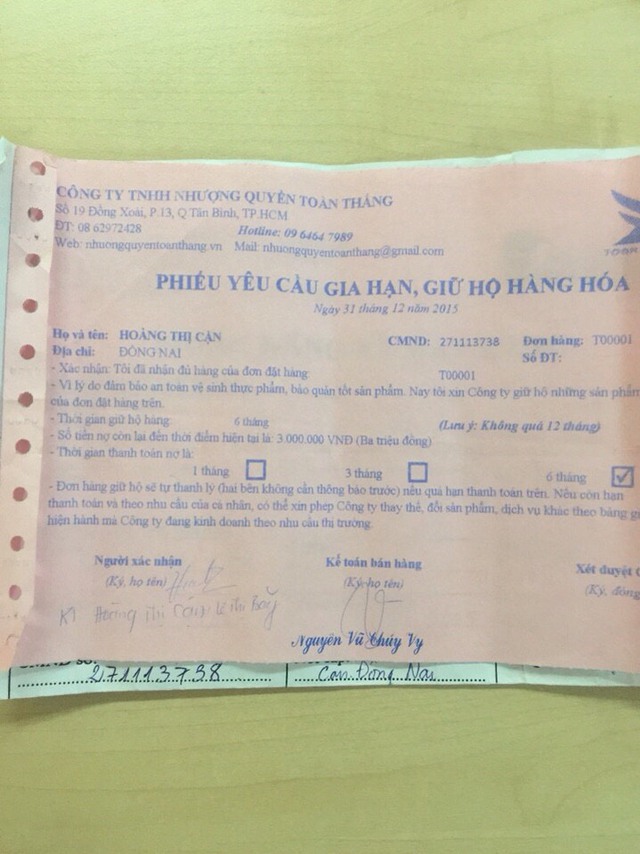 CÔNG TY TNHH NHƯỢNG QUYỀN TOÀN THẮNG
Số 19 Đồng Xoài, P.13, Q Tân Bình, TP.HCM
ĐT: 08 62972428 Hotline: 09 6464 7989
Web: nhuongquyentoanthang.vn Mail: nhuongquyentoanthang@gmail.com
PHIẾU YÊU CẦU GIA HẠN, GIỮ HỘ HÀNG HÓA
Ngày 31 tháng 12 năm 2015
Họ và tên: HOÀNG THỊ CẬN CMND: 271113738 Đơn hàng: T00001
Địa chỉ: ĐỒNG NAI Số ĐT:
- Xác nhận: Tôi đã nhận đủ hàng của đơn đặt hàng T00001
- Vì lý do đảm bảo an toàn vệ sinh thực phẩm, bảo quản tốt sản phẩm. Nay tôi xin Công ty giữ hộ những sản phẩm
của đơn đặt hàng trên.
- Thời gian giữ hộ hàng: 6 tháng (Lưu ý: Không quá 12 tháng)
- Số tiền nợ còn lại đến thời điểm hiện tại là: 3.000.000 VNĐ (Ba triệu đồng)
- Thời gian thanh toán nợ là:
1 tháng 3 tháng 6 tháng
- Đơn hàng giữ hộ sẽ tự thanh lý (hai bên không cần thông báo trước) nếu quá hạn thanh toán trên. Nếu còn hạn
thanh toán và theo nhu cầu của cá nhân, có thể xin phép Công ty thay thế, đổi sản phẩm, dịch vụ khác theo bảng
hiện hành mà Công ty đang kinh doanh theo nhu cầu thị trường.
Người xác nhận Kế toán bán hàng Xét duyệt
(Ký, họ tên) (Ký, họ tên) (Ký, đóng
Hoàng Thị Cận
Nguyễn Vũ Thúy Vy
CMND số: 271113738 Can Đồng Nai